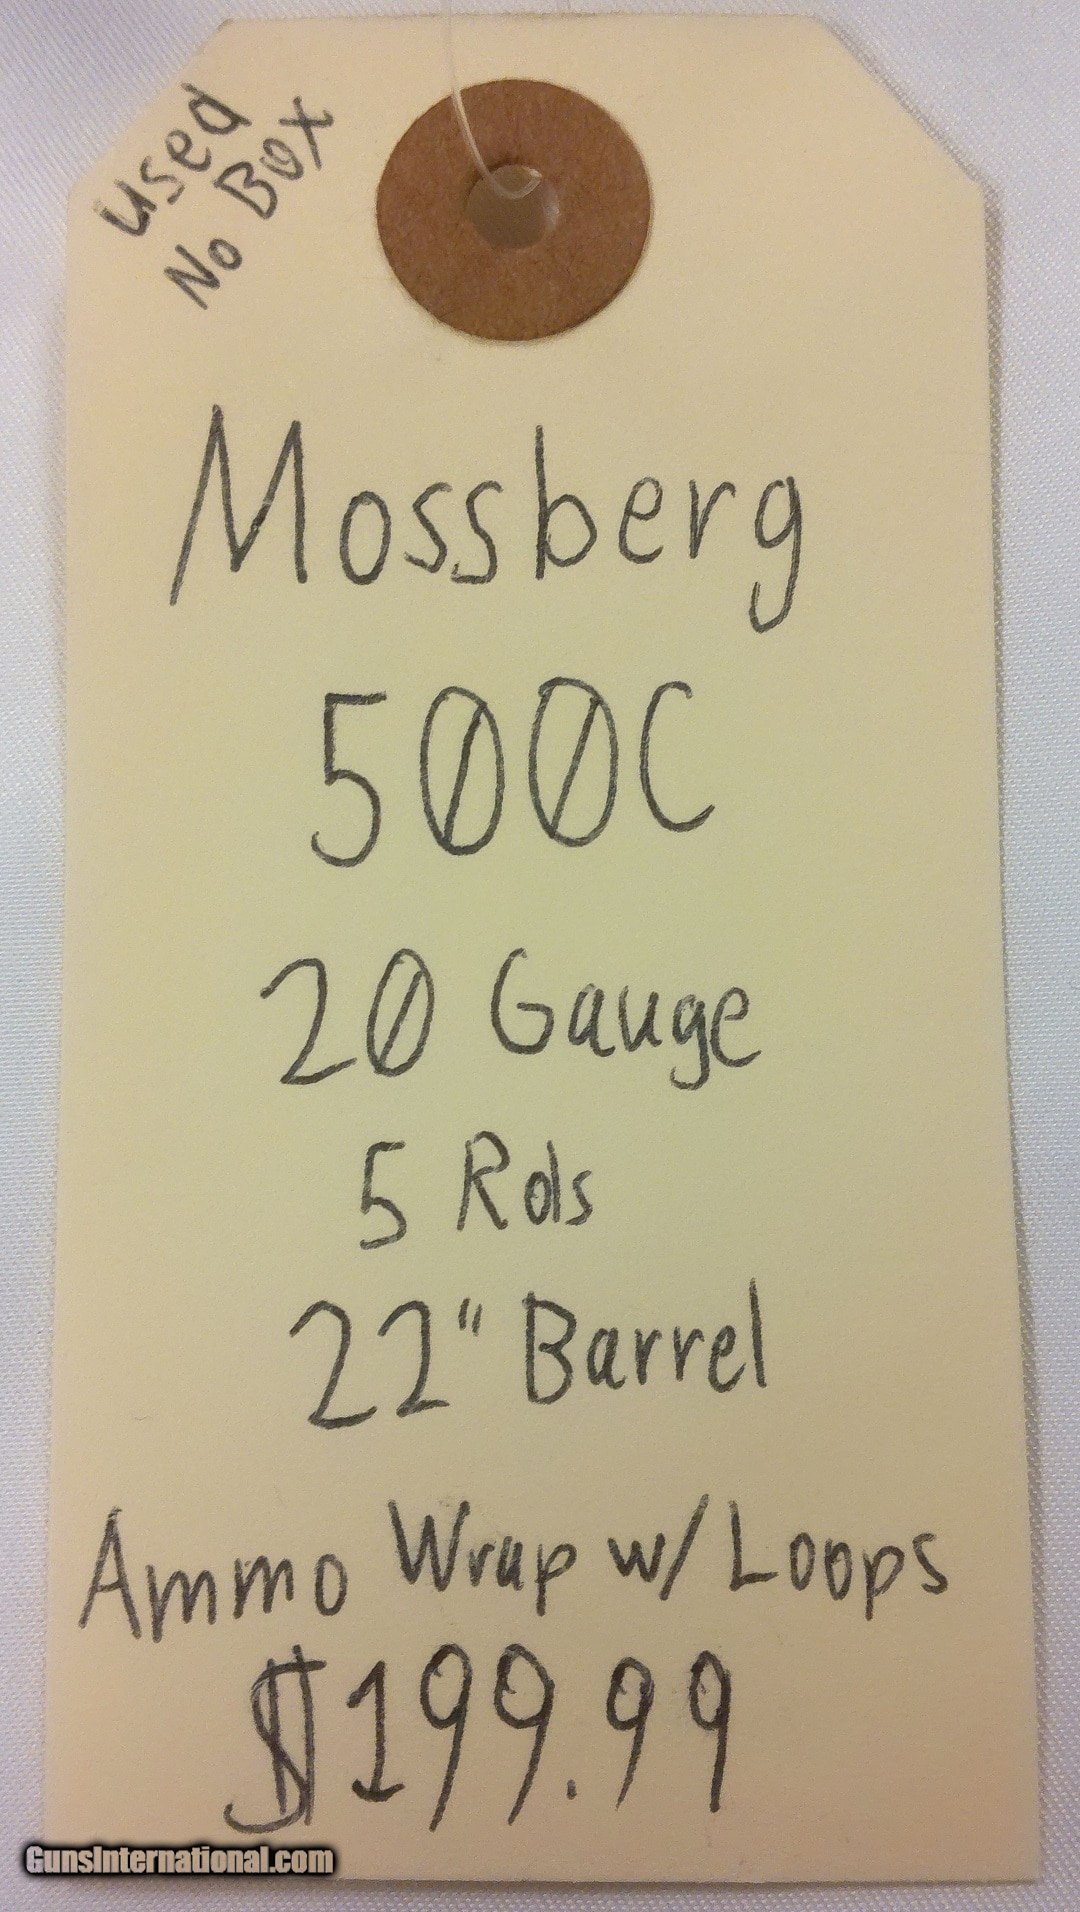 Used
No Box
Mossberg
500C
20 Gauge
5 Rds
22" Barrel
Ammo Wrap w/ Loops
$199.99
GunsInternational.com